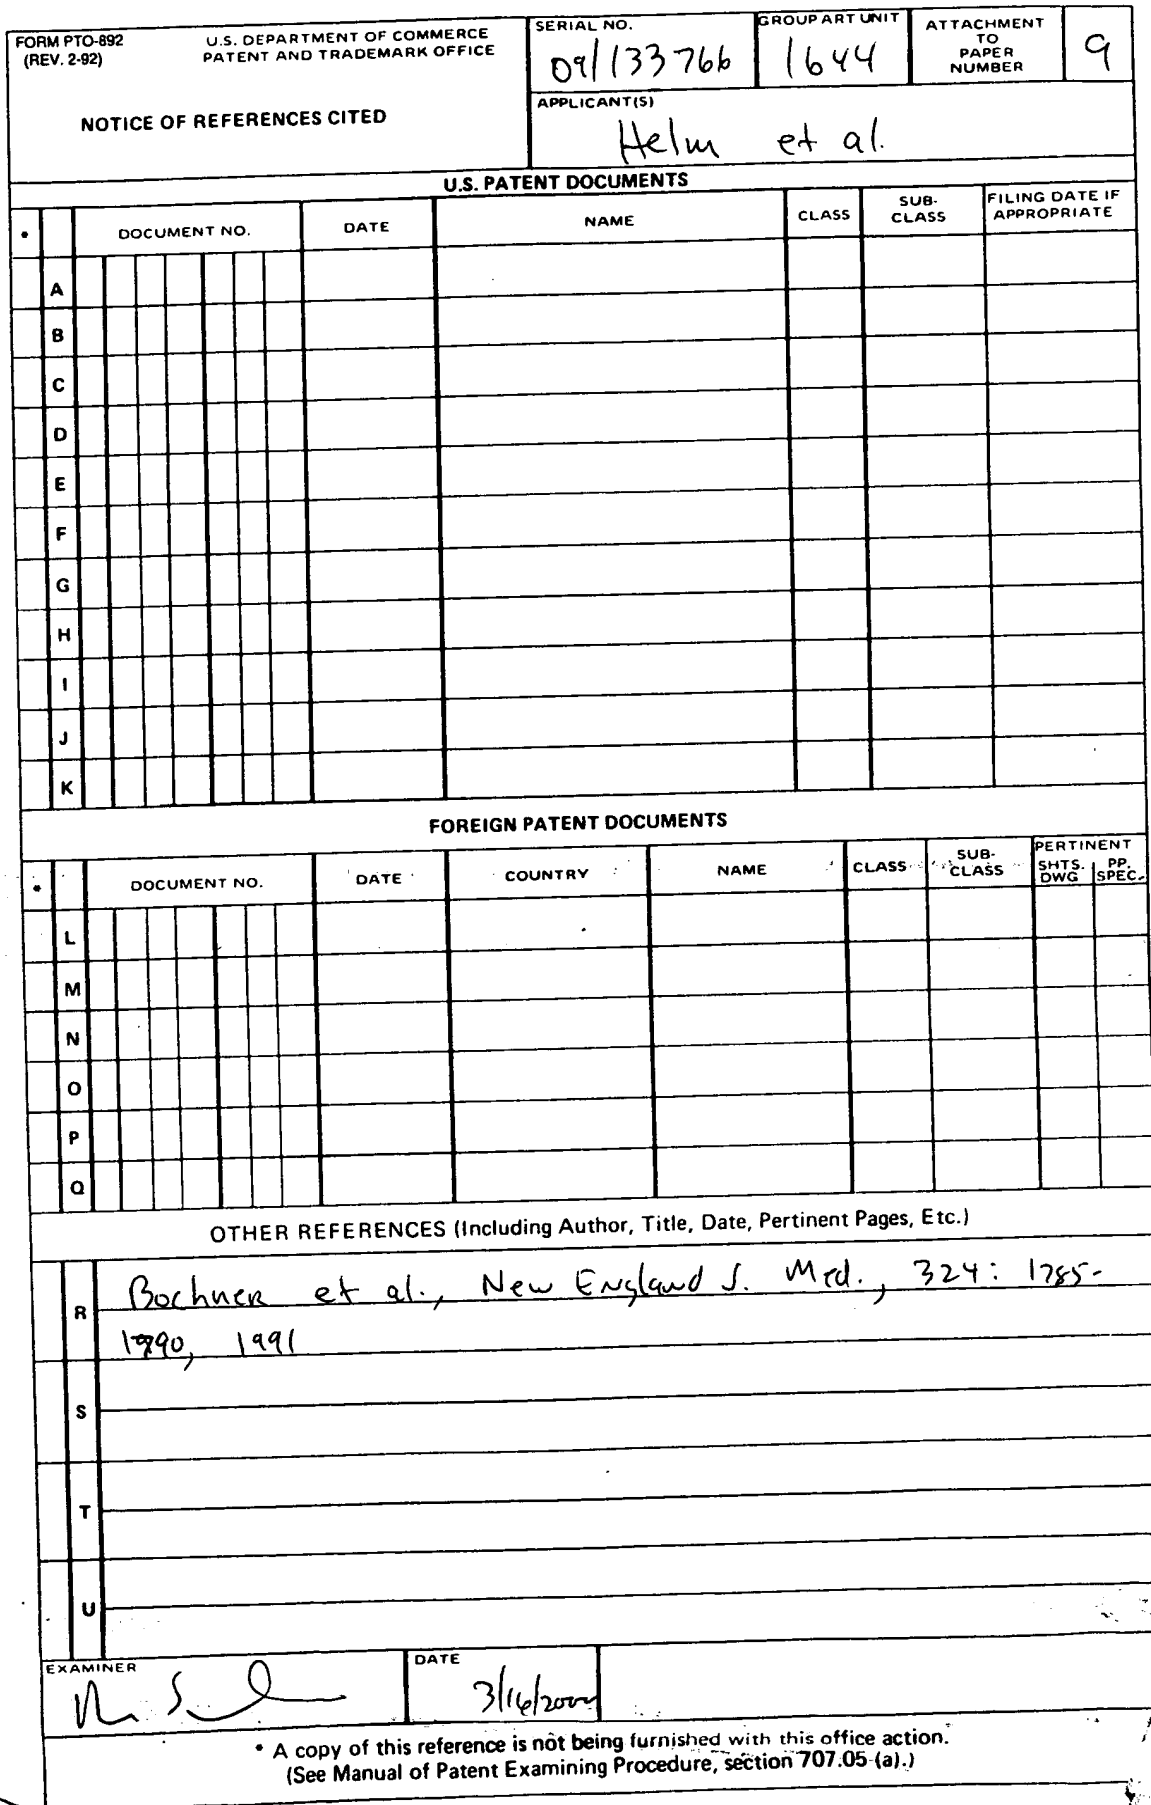 FORM PTO-892
(REV. 2-92)
U.S. DEPARTMENT OF COMMERCE
PATENT AND TRADEMARK OFFICE
NOTICE OF REFERENCES CITED
SERIAL NO.
09/133766
GROUP ART UNIT
1644
ATTACHMENT
TO
PAPER
NUMBER
9
APPLICANT(S)
Helm et al.
U.S. PATENT DOCUMENTS
* DOCUMENT NO. DATE NAME CLASS SUB-CLASS FILING DATE IF APPROPRIATE
A
B
C
D
E
F
G
H
I
J
K
FOREIGN PATENT DOCUMENTS
* DOCUMENT NO. DATE COUNTRY NAME CLASS SUB-CLASS PERTINENT SHTS. DWG PP. SPEC.
L
M
N
O
P
Q
OTHER REFERENCES (Including Author, Title, Date, Pertinent Pages, Etc.)
R Bochner et al., New England J. Med., 324: 1785-
1790, 1991
S
T
U
EXAMINER
DATE
3/16/2000
* A copy of this reference is not being furnished with this office action.
(See Manual of Patent Examining Procedure, section 707.05 (a).)